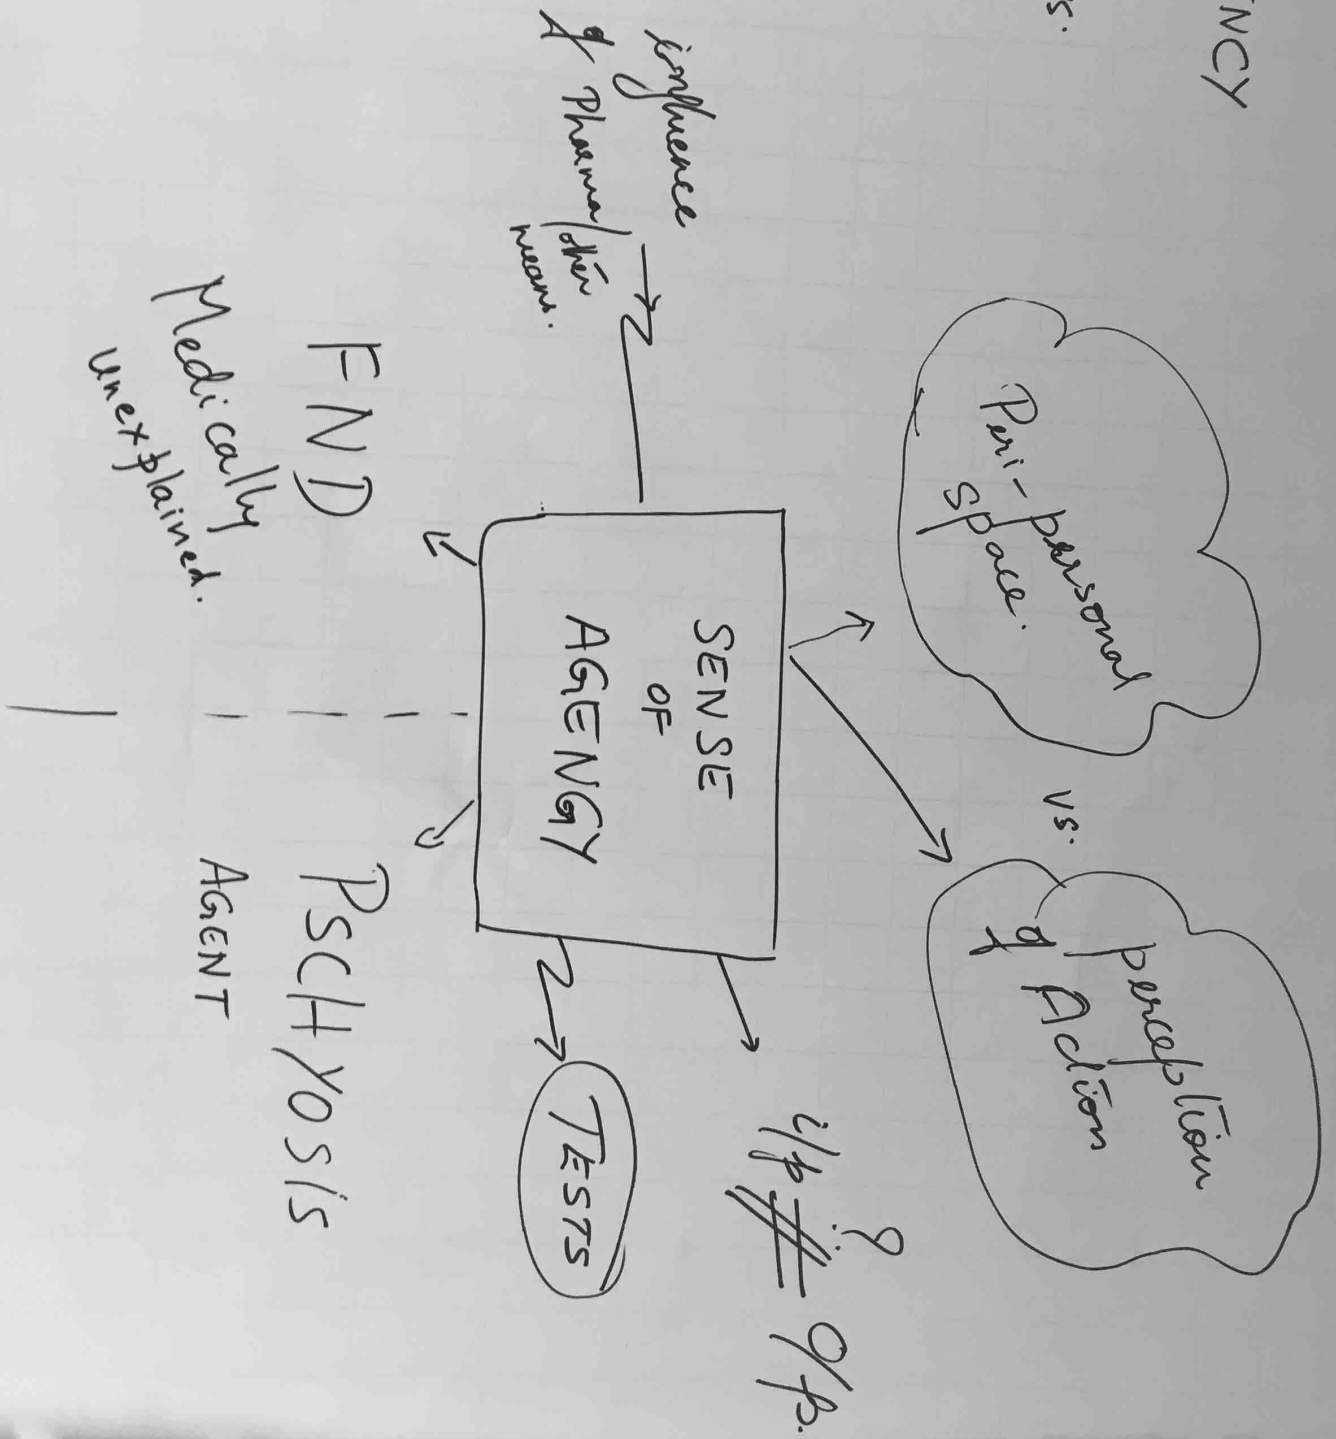 NCY
s.
Peri-personal
space.
vs.
perception
of Action
influence
of Pharma/other
means.
SENSE
OF
AGENGY
?
i/p ≠ O/p.
TESTS
FND
Medically
unexplained.
PSCHYOSIS
AGENT